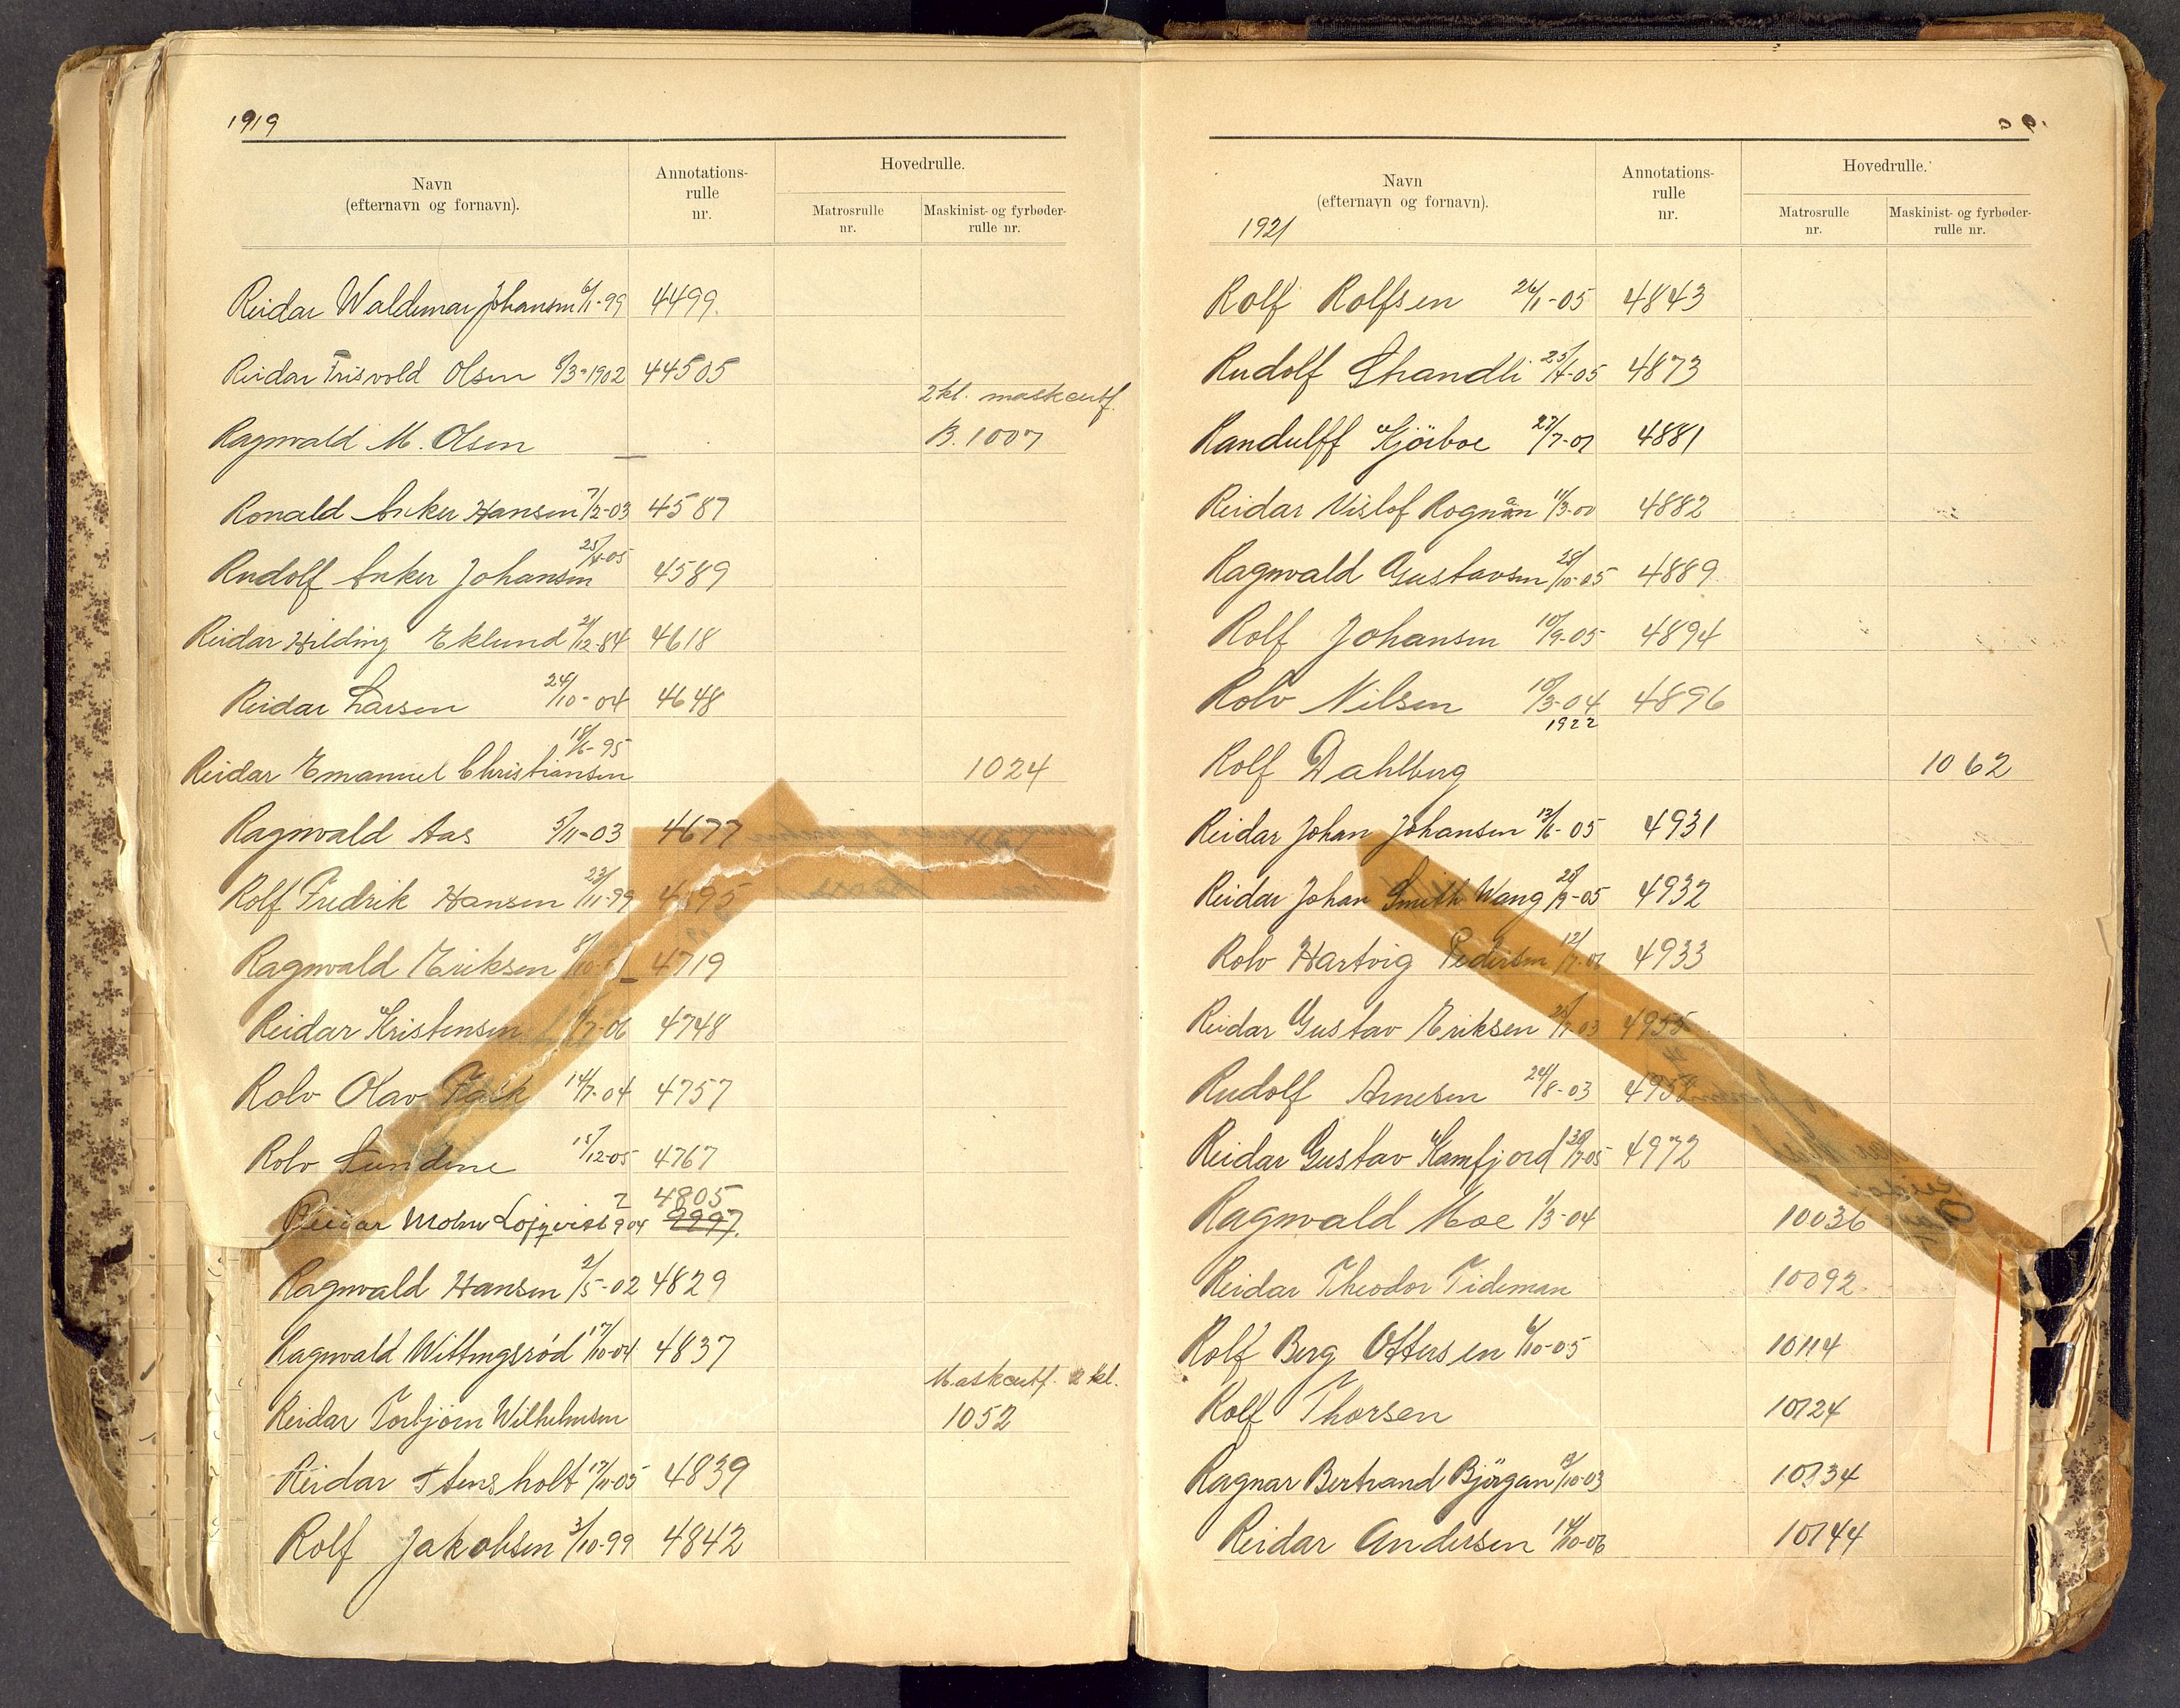 1919
Navn
(efternavn og fornavn).
Annotations-
rulle
nr.
Hovedrulle.
Matrosrulle
nr.
Maskinist- og fyrbøder-
rulle nr.
Reidar Waldemar Johansen 6/1-99 4499.
Reidar Frisvold Olsen 8/3-1902 44505
2 kl. maskcertf.
Ragnvald M. Olsen — B. 1007
Ronald Anker Hansen 7/2-03 4587
Rudolf Anker Johansen 25/4-05 4589
Reidar Hilding Eklund 21/12-84 4618
Reidar Larsen 24/10-04 4648
Reidar Emanuel Christiansen 18/6-95 1024
Ragnvald Aas 5/11-03 4677
Rolf Fredrik Hansen 23/11-99 4695
Ragnvald Eriksen 8/10- 4719
Reidar Kristensen /7-06 4748
Rolv Olav Falk 14/7-04 4757
Rolv Sundene 15/12-05 4767
4805
Reidar Lofqvist 904 9997.
Ragnvald Hansen 2/5-02 4829
Ragnvald Wittingsrød 17/10-04 4837
Maskcertf. 2 kl.
Reidar Torbjørn Wilhelmsen 1052
Reidar Stensholt 17/11-05 4839
Rolf Jakobsen 3/10-99 4842
Navn
(efternavn og fornavn).
1921
Annotations-
rulle
nr.
Hovedrulle.
Matrosrulle
nr.
Maskinist- og fyrbøder-
rulle nr.
Rolf Rolfsen 26/1-05 4843
Rudolf Strandli 25/4-05 4873
Randulff Kjörboe 27/7-01 4881
Reidar Vislof Rognan 11/3-00 4882
Ragnvald Gustavsen 28/10-05 4889
Rolf Johansen 10/9-05 4894
Rolv Nilsen 10/3-04 4896
1922
Rolf Dahlberg 1062
Reidar Johan Johansen 13/6-05 4931
Reidar Johan Smith Wang 28/9-05 4932
Rolv Hartvig Pedersen 12/7-06 4933
Reidar Gustav Eriksen 4955
Rudolf Arnesen 24/8-03 4958
Reidar Gustav Kamfjord 30/7-05 4972
Ragnvald Moe 1/3-04 10036
Reidar Theodor Tideman 10092
Rolf Berg Ottersen 6/10-05 10114
Rolf Thorsen 10124
Ragnar Bertrand Björgan /10-03 10134
Reidar Andersen 14/10-06 10144